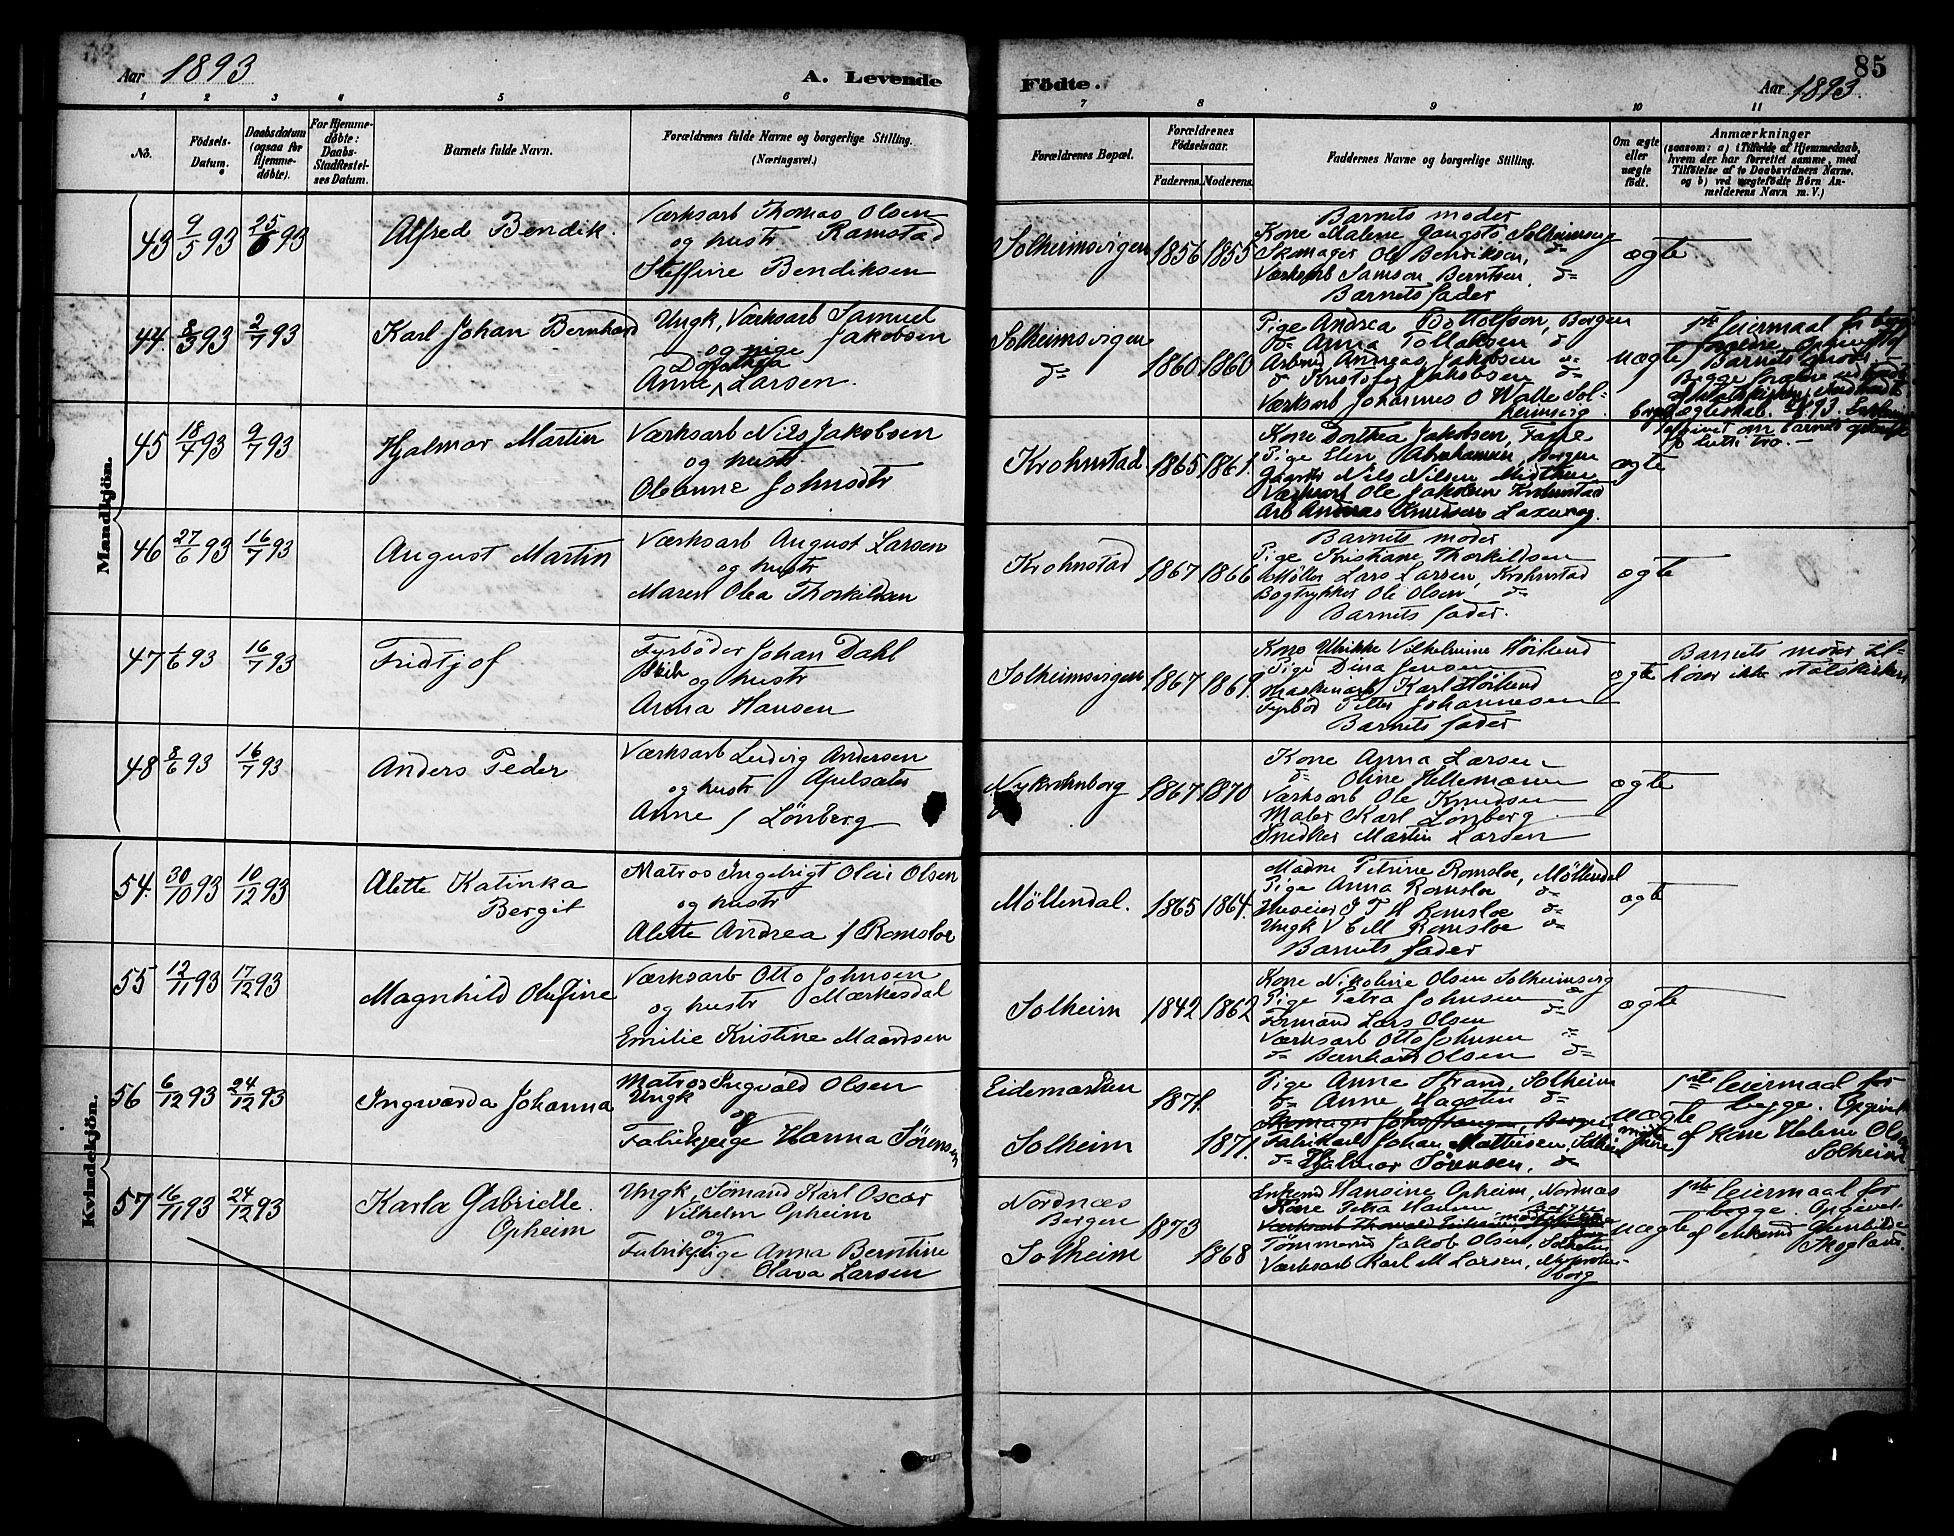 Aar 1893
A. Levende
Födte.
85
Aar 1893.
1 2 3 4 5 6 7 8 9 10 11
No.
Födsels-Datum.
Daabsdatum (ogsaa for Hjemmedøbte).
For Hjemmedøbte: Daabs-Stadfæstelses Datum.
Barnets fulde Navn.
Forældrenes fulde Navne og borgerlige Stilling.
(Næringsvei.)
Forældrenes Bopæl.
Forældrenes Födselsaar.
Faderens. Moderens.
Faddernes Navne og borgerlige Stilling.
Om ægte eller uægte födt.
Anmærkninger
(saasom: a) i Tilfælde af Hjemmedaab, hvem der har forrettet samme, med Tilföielse af to Daabsvidners Navne, og b) ved uægtefödte Börn Anmelderens Navn m. V.)
Mandkjön.
43 9/5 93 25/6 93 Alfred Bendik.
Værksarb Thomas Olsen
og hustr Ramstad
Steffine Bendiksen
Solheimsvigen 1856 1855
Barnets moder
Kone Malene Gaugstö Solheimsvg
Skomager Ole Bendiksen, do
Værksarb Samson Berntsen, do
Barnets fader
ægte
44. 8/3 93 2/7 93 Karl Johan Bernhard
Ungk, Værksarb Samuel
og pige Jakobsen
Dorothea
Anna Larsen.
Solheimsvigen
do 1860 1860
Pige Andrea Bottolfson, Bergen
do Anna Tollaksen do
Arbmd Andreas Jakobsen do
do Kristofer Jakobsen do
Værksarb Johannes O Walle Solheimsvig.
uægte
1ste leiermaal for begge
Barnets moder
45 18/4 93 9/7 93 Hjalmar Martin
Værksarb Nils Jakobsen
og hustr.
Oleanne Johnsdtr
Krohnstad 1865 1861.
Kone Dorthea Jakobsen, Fane
Pige Elen Abrahamsen, Bergen
Nils Nilsen Midttun
Værksarb Ole Jakobsen Krohnstad
Arb Andreas Knudsen Laxevag.
ægte
46 27/6 93 16/7 93 August Martin
Værksarb August Larsen
og hustr
Maren Olea Thorkildsen
Krohnstad 1867 1866
Barnets moder
Pige Kristiane Thorkildsen
Møller Lars Larsen, Krohnstad
Bogtrykker Ole Olsen, do
Barnets fader.
ægte
47 1/6 93 16/7 93 Fridtjof
Fyrböder Johan Dahl
Skib og hustr
Anna Hansen
Solheimsvigen 1867 1869.
Kone Ulrikke Vilhelmine Hörlund
Pige Dina Jensen
Maskinarb Karl Hörlund
Fyrböd Petter Johannesen
Barnets fader
ægte
Barnets moder tilhörer ikke statskirken
48 8/6 93 16/7 93 Anders Peder
Værksarb Ludvig Andersen
og hustr Apelsæter
Anne f Lönberg
Nykrohnborg 1867 1870
Kone Anna Larsen
do Oline Hellemann
Værksarb Ole Knudsen
Maler Karl Lönberg
Snedker Martin Larsen
ægte
Kvindekjön.
54. 30/10 93 10/12 93 Alette Katinka
Bergit
Matros Ingebrigt Olai Olsen
og hustr
Alette Andrea f Romsloe
Möllendal. 1865 1864.
Madme Petrine Romsloe, Möllendal
Pige Anna Romsloe do
Huseier J T M Romsloe do
Ungk V E M Romsloe do
Barnets fader
ægte
55 12/11 93 17/12 93 Magnhild Olufine
Værksarb Otto Johnsen
og hustr Mærkesdal
Emilie Kristine Maardsen
Solheim 1842 1862
Kone Nikoline Olsen Solheimsvg
Pige Petra Johnsen do
Formand Lars Olsen do
Værksarb Otto Johnsen do
do Bernhard Olsen do
ægte
56 6/12 93 24/12 93 Ingwarda Johanna
Matros Ingvald Olsen
Ungk
og
Fabrikpige Hanna Sörensen
Eidemarken 1871.
Solheim 1871.
Pige Anne Strand, Solheim
do Anne Hagsten do
Fabrikarb Johan Mathisen, Solheim
do Hjalmar Sörensen, do
uægte
1ste leiermaal for
begge. Opgivet
af kone Helene Olsen
Solheim
57 16/11 93 24/12 93 Karla Gabrielle.
Opheim
Ungk, Sömand Karl Oscar
Vilhelm Opheim
og
Fabrikpige Anna Berntine
Olava Larsen
Nordnæs
Bergen 1873
Solheim 1868
Enkemd Hansine Opheim, Nordnæs
Kone Petra Hansen Bergen
Tömmermd Jakob Olsen, Solheim
Værksarb Karl M Larsen, Nykrohnborg
uægte
1ste leiermaal for
begge. Opgivet
af enkemd Gunhilde
Skogland.